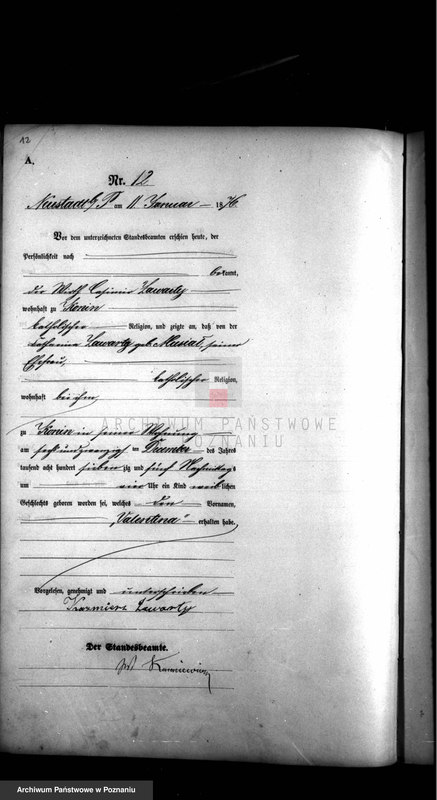 12
A.
Nr. 12
Neustadt b/P am 11 Januar 1876
Vor dem unterzeichneten Standesbeamten erschien heute, der
Persönlichkeit nach
bekannt,
der Wirth Casimir Zawarty
wohnhaft zu Konin
katholischer Religion, und zeigte an, daß von der
Catharina Zawarty geb. Musial, seiner
Ehefrau,
katholischer Religion,
wohnhaft bei ihm,
zu Konin in seiner Wohnung
am sechsundzwanzigsten Dezember des Jahres
tausend acht hundert siebenzig und fünf Nachmittags
um ein Uhr ein Kind weiblichen
Geschlechts geboren worden sei, welches den Vornamen,
"Valentina" erhalten habe.
Vorgelesen, genehmigt und unterschrieben
Kazmierz Zawarty
Der Standesbeamte.
ARCHIWUM PAŃSTWOWE
W POZNANIU
Archiwum Państwowe w Poznaniu